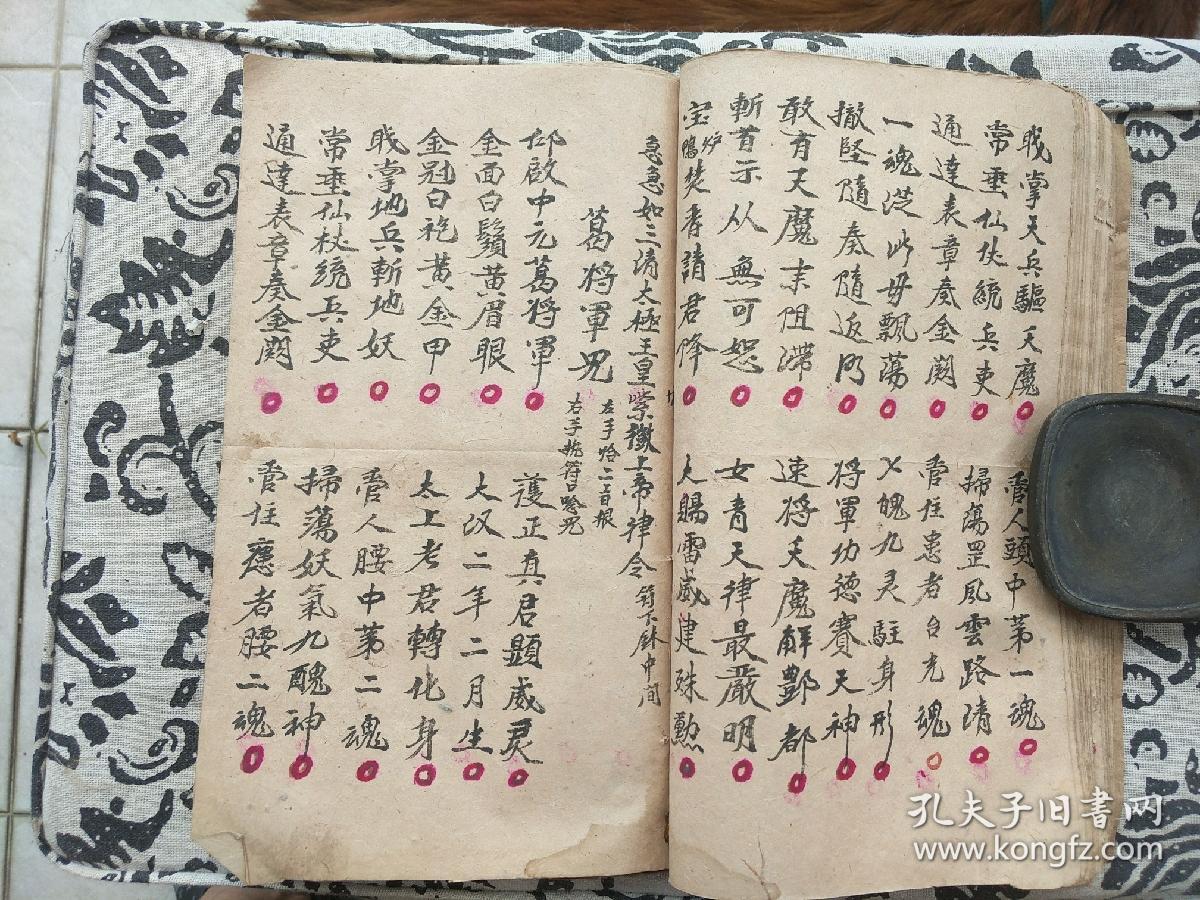 戝掌天兵驅天魔 管人頭中第一魂
常垂仙伏統兵吏 掃蕩罡風雲路清
通達表章奏金闕 管往患者台光魂
一魂從此毋飄蕩 七魄九灵駐身形
撤堅隨奏隨返所 将軍功德賽天神
敢有天魔未阻滞 速将天魔解酆都
斬首示从無可恕 女青天律最嚴明
宝炉鴨焚香請君降 大賜雷威建殊勳
急急如三清太極玉皇紫微上帝律令 符下床中间
葛将軍咒 左手恰二百根 右手执符口唸咒
仰啟中元葛将軍 護正真君顕威灵
金面白鬚黄眉眼 大汉二年二月生
金冠白袍黄金甲 太上老君轉化身
戝掌地兵斬地妖 管人腰中苐二魂
常垂仙杖統兵吏 掃蕩妖氣九醜神
通達表章奏金闕 管住應者腰二魂
孔夫子旧书网
www.kongfz.com